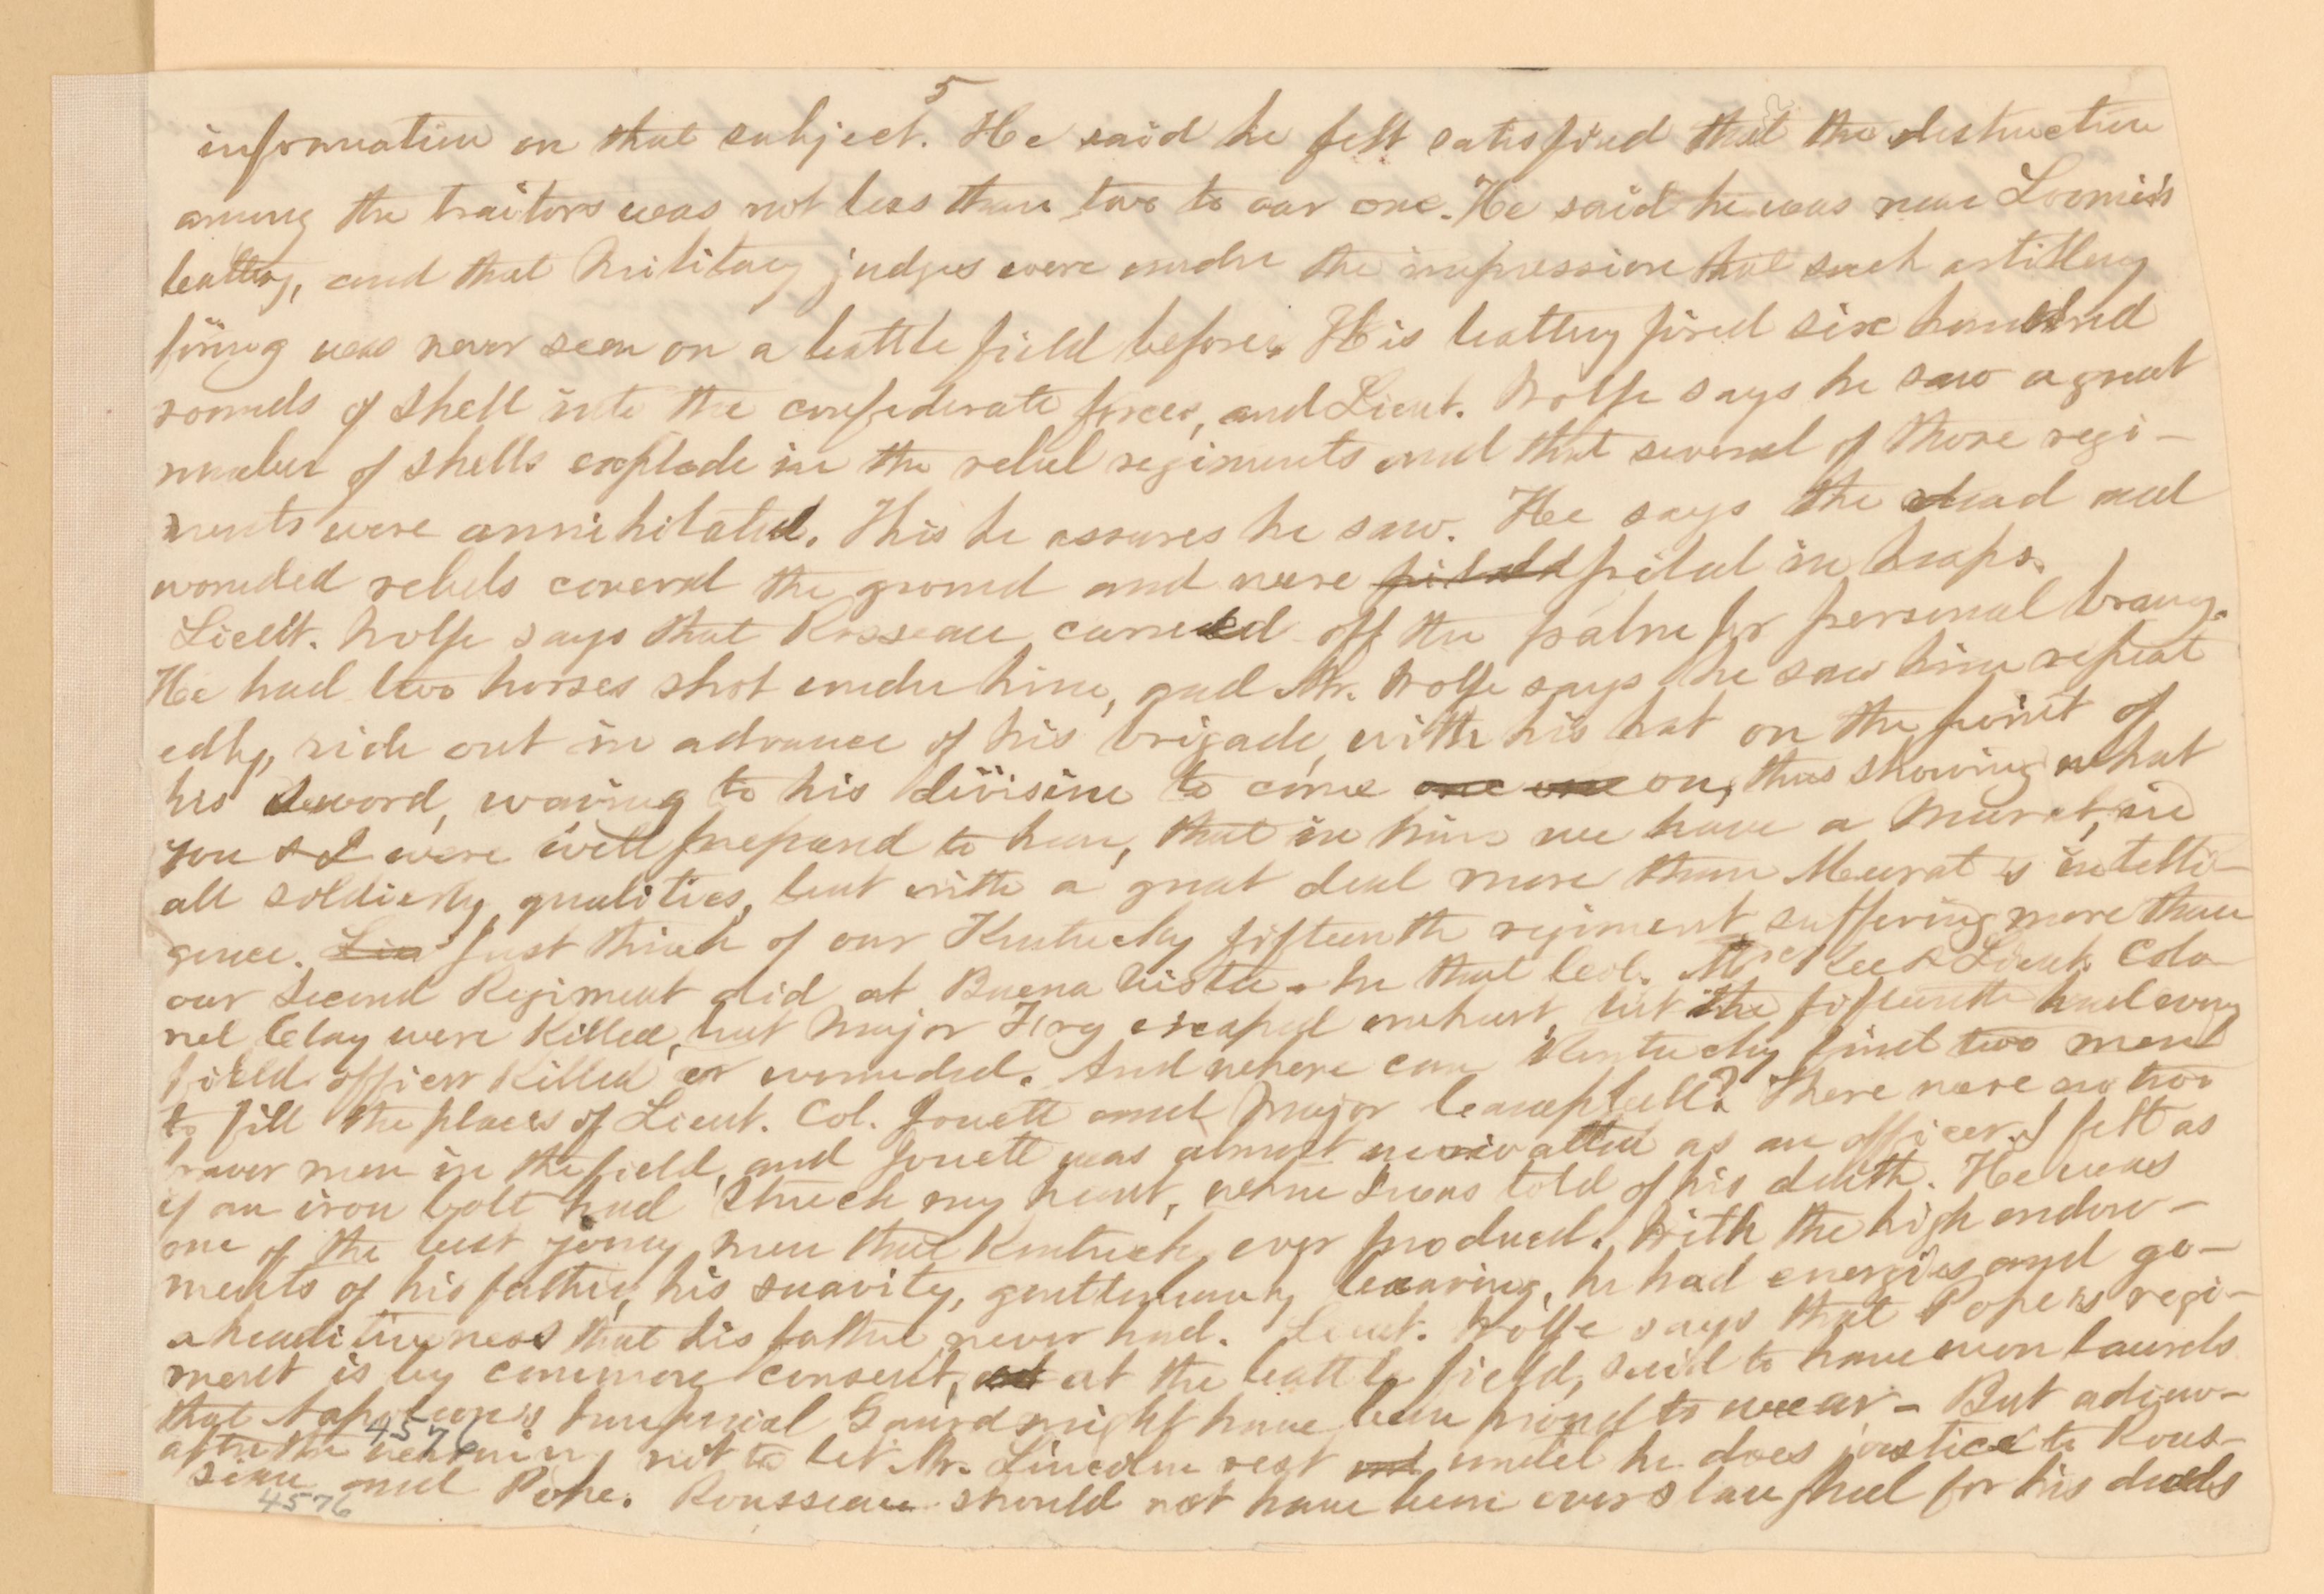 5
information on that subject. He said he felt satisfied that the destruction
among the traitors was not less than two to our one. He said he was near Loomis's
battery, and that military judges were under the impression that such artillery
firing was never seen on a battle field before. His battery fired six hundred
rounds of shell into the confederate forces, and Lieut. Wolfe says he saw a great
number of shells explode in the rebel regiments and that several of those regi-
ments were annihilated. This he assures he saw. He says the dead and
wounded rebels covered the ground and were piled in heaps.
Lieut. Wolfe says that Rosseau carried off the palm for personal bravery.
He had two horses shot under him, and Mr. Wolfe says he saw him repeat
edly, ride out in advance of his brigade, with his hat on the point of
his sword, waving to his division to come one one on, thus showing what
you & I were well prepared to hear, that in him we have a Murat, in
all soldierly qualities, but with a great deal more than Murat's intelli-
gence. Lieu Just think of our Kentucky fifteenth regiment suffering more than
our Second Regiment did at Buena Vista. In that Col. McKee & Lieut. Colo
nel Clay were killed, but Major Fry escaped unhurt, but the fifteenth had every
field officer killed or wounded. And where can Kentucky find two men
to fill the places of Lieut. Col. Jouett and Major Campbell? There were no two
braver men in the field, and Jouett was almost unrivalled as an officer. I felt as
if an iron bolt had struck my heart, when I was told of his death. He was
one of the best young men that Kentucky ever produced. With the high endow-
ments of his father, his suavity, gentlemanly bearing, he had energies and go-
aheaditiveness that his father never had. Lieut. Wolfe says that Pope's regi-
ment is by common consent, at the battle field, said to have won laurels
that Napoleon's Imperial Gaurd might have been proud to wear - But adieu-
after the not to let Mr. Lincoln rest until he does justice to Rous-
seau and Pope. Rousseau should not have been overslaughed for his deeds
4576
4576